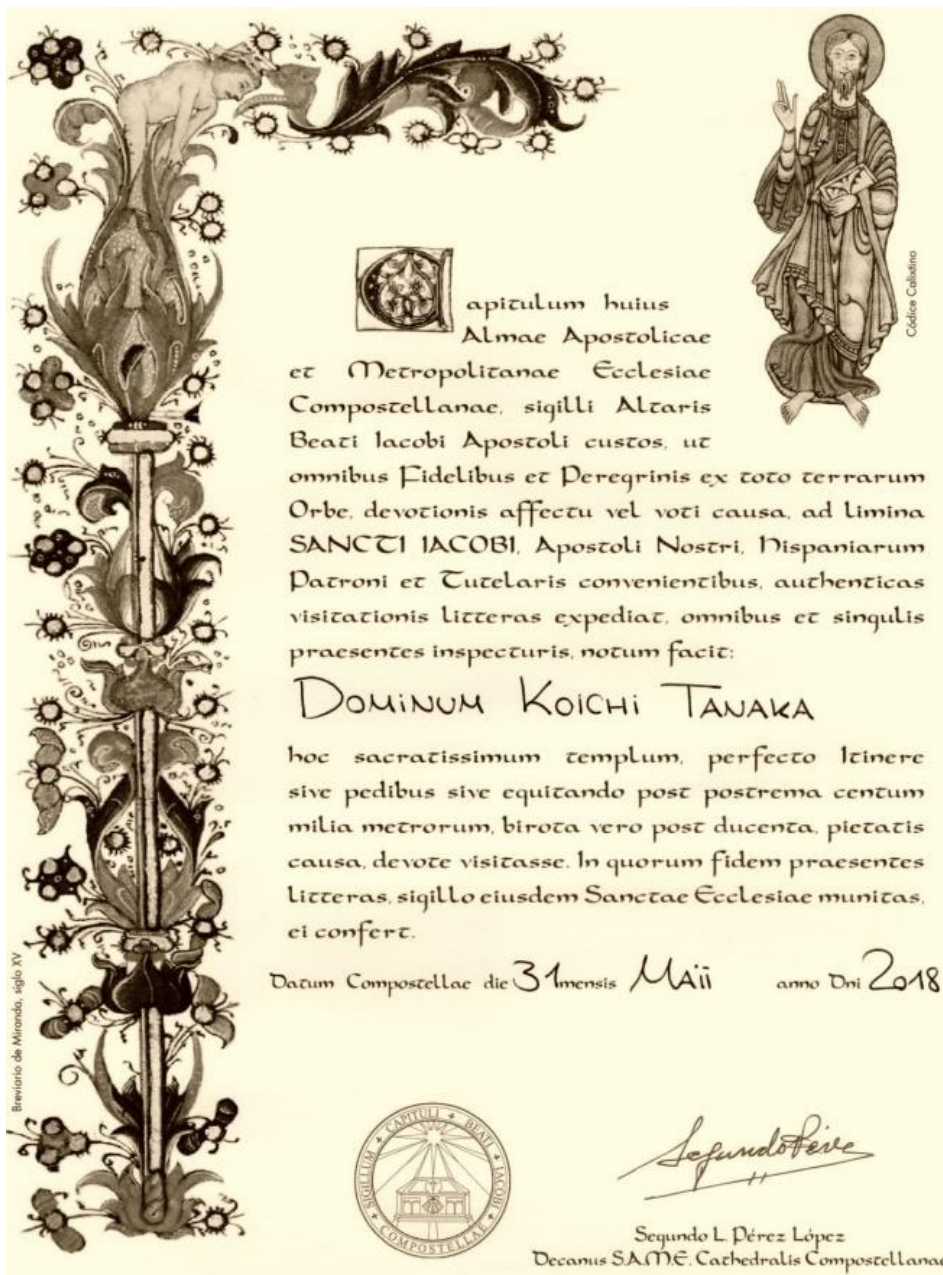 Códice Calixtino
Capitulum huius
Almae Apostolicae
et Metropolitanae Ecclesiae
Compostellanae, sigilli Altaris
Beati Iacobi Apostoli custos, ut
omnibus Fidelibus et Peregrinis ex toto terrarum
Orbe, devotionis affectu vel voti causa, ad limina
SANCTI IACOBI, Apostoli Nostri, Hispaniarum
Patroni et Tutelaris convenientibus, authenticas
visitationis litteras expediat, omnibus et singulis
praesentes inspecturis, notum facit:
DOMINUM KOICHI TANAKA
hoc sacratissimum templum, perfecto Itinere
sive pedibus sive equitando post postrema centum
milia metrorum, birota vero post ducenta, pietatis
causa, devote visitasse. In quorum fidem praesentes
litteras, sigillo eiusdem Sanctae Ecclesiae munitas,
ei confert.
Datum Compostellae die 31 mensis MAII anno Dni 2018
Breviario de Miranda, siglo XV
SIGILLUM CAPITULI BEATI IACOBI COMPOSTELLAE
Segundo Pérez
Segundo L. Pérez López
Decanus S.A.M.E. Cathedralis Compostellana